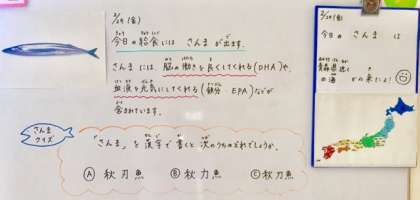 2/29(金)
今日の給食には さんま が出ます。
さんまには 脳の働きを良くしてくれる(DHA)や、
血液を元気にしてくれる(鉄分・EPA)などが
含まれています。
さんまクイズ
「さんま」を漢字で書くと次のうちのどれでしょうか。
Ⓐ 秋刃魚 Ⓑ 秋力魚 Ⓒ 秋刀魚
今日の さんま は
青森県
の海 が来たよ!